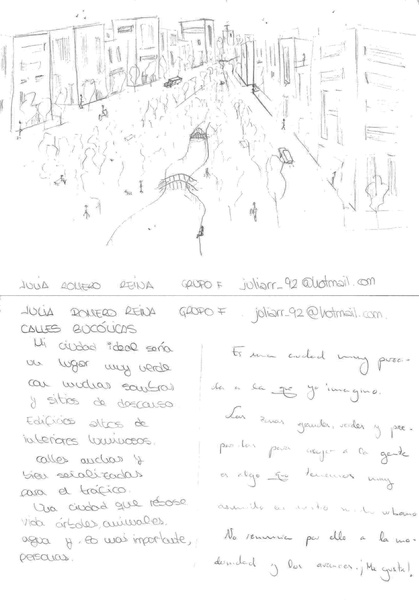 JULIA ROMERO REINA GRUPO F juliarr_92@hotmail.com
JULIA ROMERO REINA GRUPO F juliarr_92@hotmail.com
CALLES BUCÓLICAS
Mi ciudad ideal sería
un lugar muy verde
con muchas sombras
y sitios de descanso
Edificios altos de
interiores luminosos.
calles anchas y
bien señalizadas
para el tráfico.
Una ciudad que rebose
vida, árboles, animales,
agua y lo más importante,
personas.
Es una ciudad muy parec-
ida a la que yo imagino.
Las zonas grandes, verdes y
para la gente
es algo que tenemos muy
No renuncia por ello a la mo-
dernidad y los avances. ¡Me gusta!